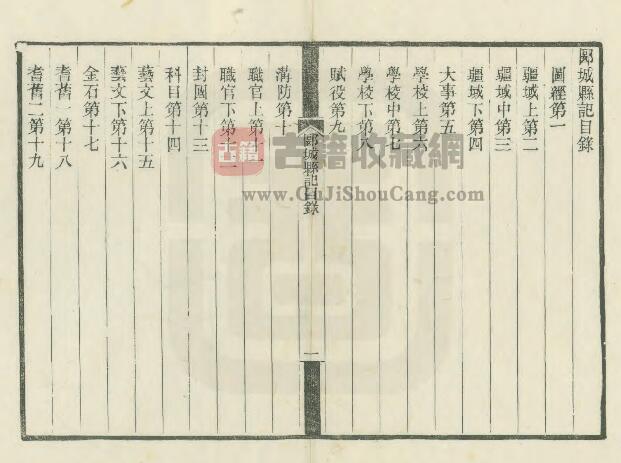 郾城縣記目錄
圖經第一
疆域上第二
疆域中第三
疆域下第四
大事第五
學校上第六
學校中第七
學校下第八
賦役第九
郾城縣記目錄
一
溝防第十
職官上第十一
職官下第十二
封國第十三
科目第十四
藝文上第十五
藝文下第十六
金石第十七
耆舊一第十八
耆舊二第十九
古籍
古籍收藏網
www.GuJiShouCang.com